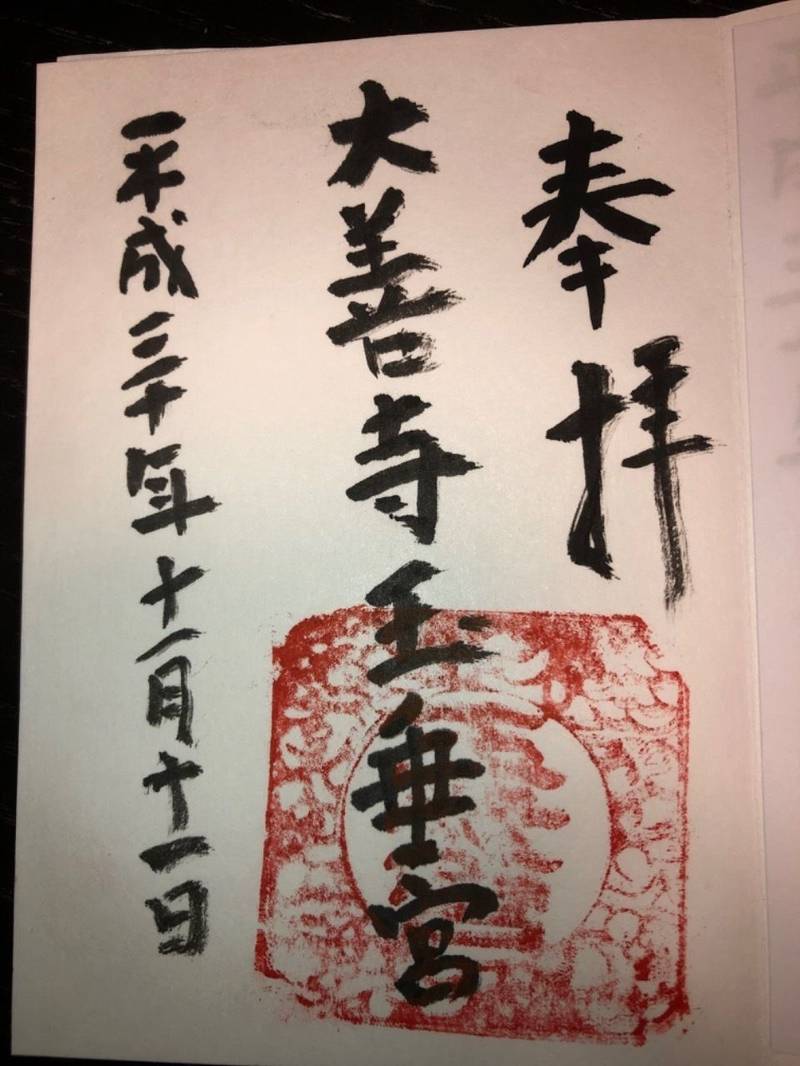 奉拝
大善寺玉垂宮
平成三十年十一月十一日